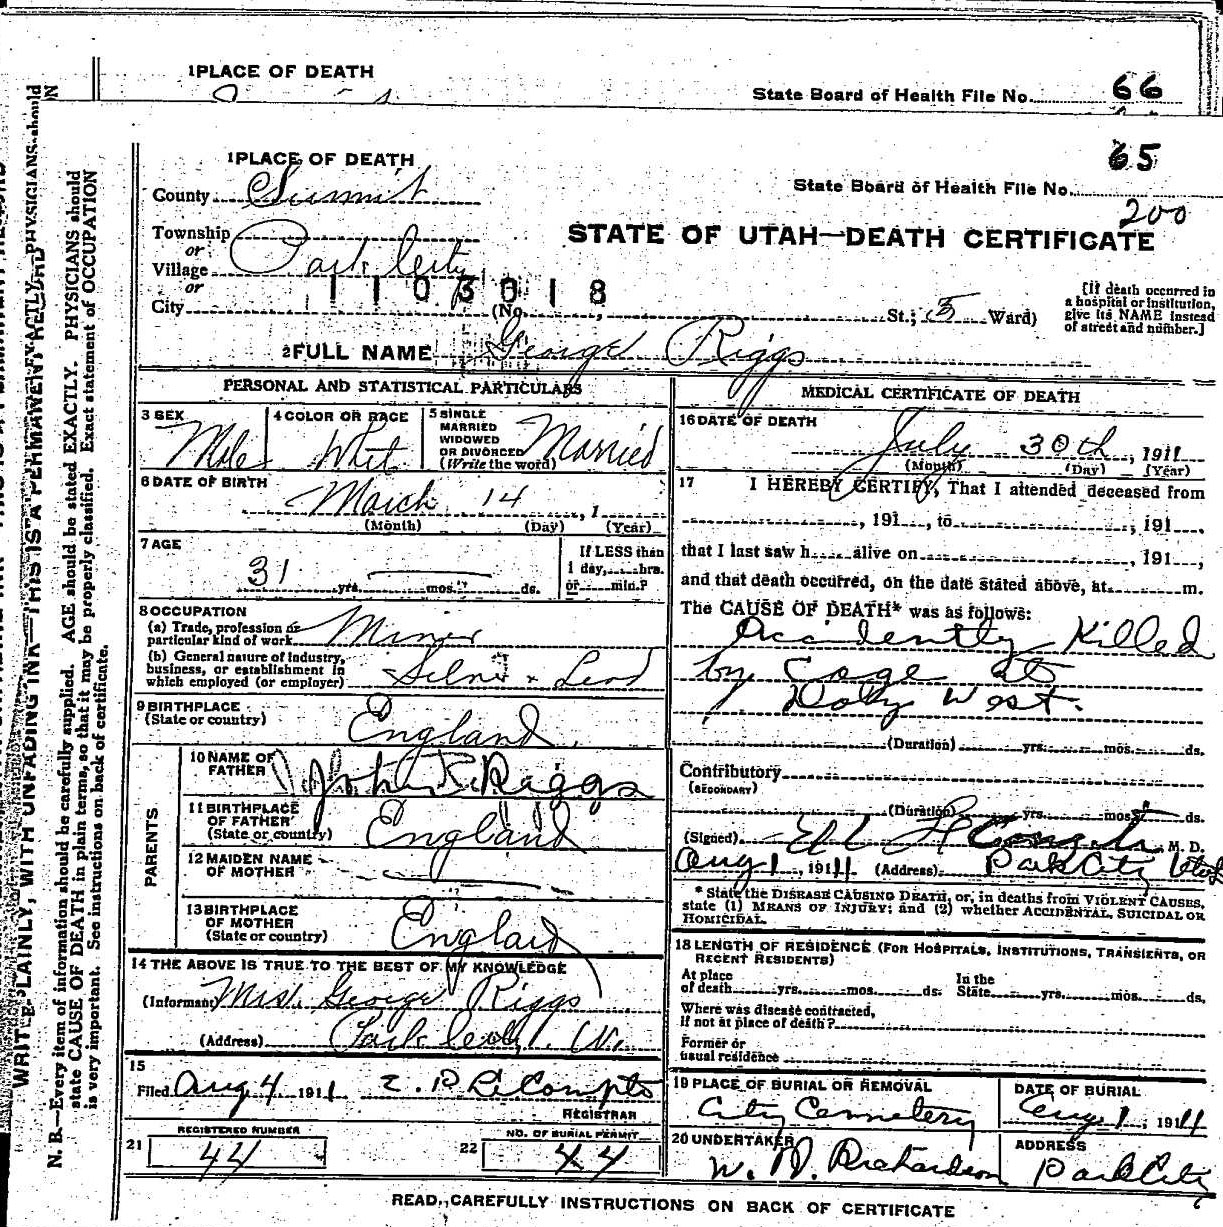 1 PLACE OF DEATH
State Board of Health File No. 66
1 PLACE OF DEATH
65
County Summit
State Board of Health File No.
200
Township
or
Village Park City
or
City
STATE OF UTAH—DEATH CERTIFICATE
1103018
(No. St.; 5 Ward)
[If death occurred in
a hospital or institution,
give its NAME instead
of street and number.]
2 FULL NAME George Riggs
PERSONAL AND STATISTICAL PARTICULARS
3 SEX
Male
4 COLOR OR RACE
Whit
5 SINGLE
MARRIED
WIDOWED
OR DIVORCED
(Write the word)
Married
6 DATE OF BIRTH
March 14, 1
(Month) (Day) (Year)
7 AGE
31 yrs. mos. ds.
If LESS than
1 day, hrs.
or min.?
8 OCCUPATION
(a) Trade, profession or
particular kind of work Miner
(b) General nature of industry,
business, or establishment in
which employed (or employer) Silver & Lead
9 BIRTHPLACE
(State or country)
England
PARENTS
10 NAME OF
FATHER
John Riggs
11 BIRTHPLACE
OF FATHER
(State or country)
England
12 MAIDEN NAME
OF MOTHER
13 BIRTHPLACE
OF MOTHER
(State or country)
England
14 THE ABOVE IS TRUE TO THE BEST OF MY KNOWLEDGE
(Informant) Mrs. George Riggs
(Address) Park City
15
Filed Aug 4 1911
REGISTRAR
21 REGISTERED NUMBER
44
22 NO. OF BURIAL PERMIT
44
MEDICAL CERTIFICATE OF DEATH
16 DATE OF DEATH
July 30th, 1911
(Month) (Day) (Year)
17 I HEREBY CERTIFY, That I attended deceased from
, 191 , to , 191 ,
that I last saw h alive on , 191 ,
and that death occurred, on the date stated above, at m.
The CAUSE OF DEATH* was as follows:
Accidently Killed
by Cage at
Daly West.
(Duration) yrs. mos. ds.
Contributory
(SECONDARY)
(Duration) yrs. mos. ds.
(Signed) M. D.
Aug 1, 1911 (Address) Park City Utah
* State the DISEASE CAUSING DEATH, or, in deaths from VIOLENT CAUSES,
state (1) MEANS OF INJURY; and (2) whether ACCIDENTAL, SUICIDAL OR
HOMICIDAL.
18 LENGTH OF RESIDENCE (FOR HOSPITALS, INSTITUTIONS, TRANSIENTS, OR
RECENT RESIDENTS)
At place
of death yrs. mos. ds.
In the
State yrs. mos. ds.
Where was disease contracted,
if not at place of death?
Former or
usual residence
19 PLACE OF BURIAL OR REMOVAL
City Cemetery
DATE OF BURIAL
Aug 1, 1911
20 UNDERTAKER
W. D. Richardson
ADDRESS
Park City
READ CAREFULLY INSTRUCTIONS ON BACK OF CERTIFICATE
WRITE PLAINLY, WITH UNFADING INK—THIS IS A PERMANENT RECORD
N. B.—Every item of information should be carefully supplied. AGE should be stated EXACTLY. PHYSICIANS should
state CAUSE OF DEATH in plain terms, so that it may be properly classified. Exact statement of OCCUPATION
is very important. See instructions on back of certificate.